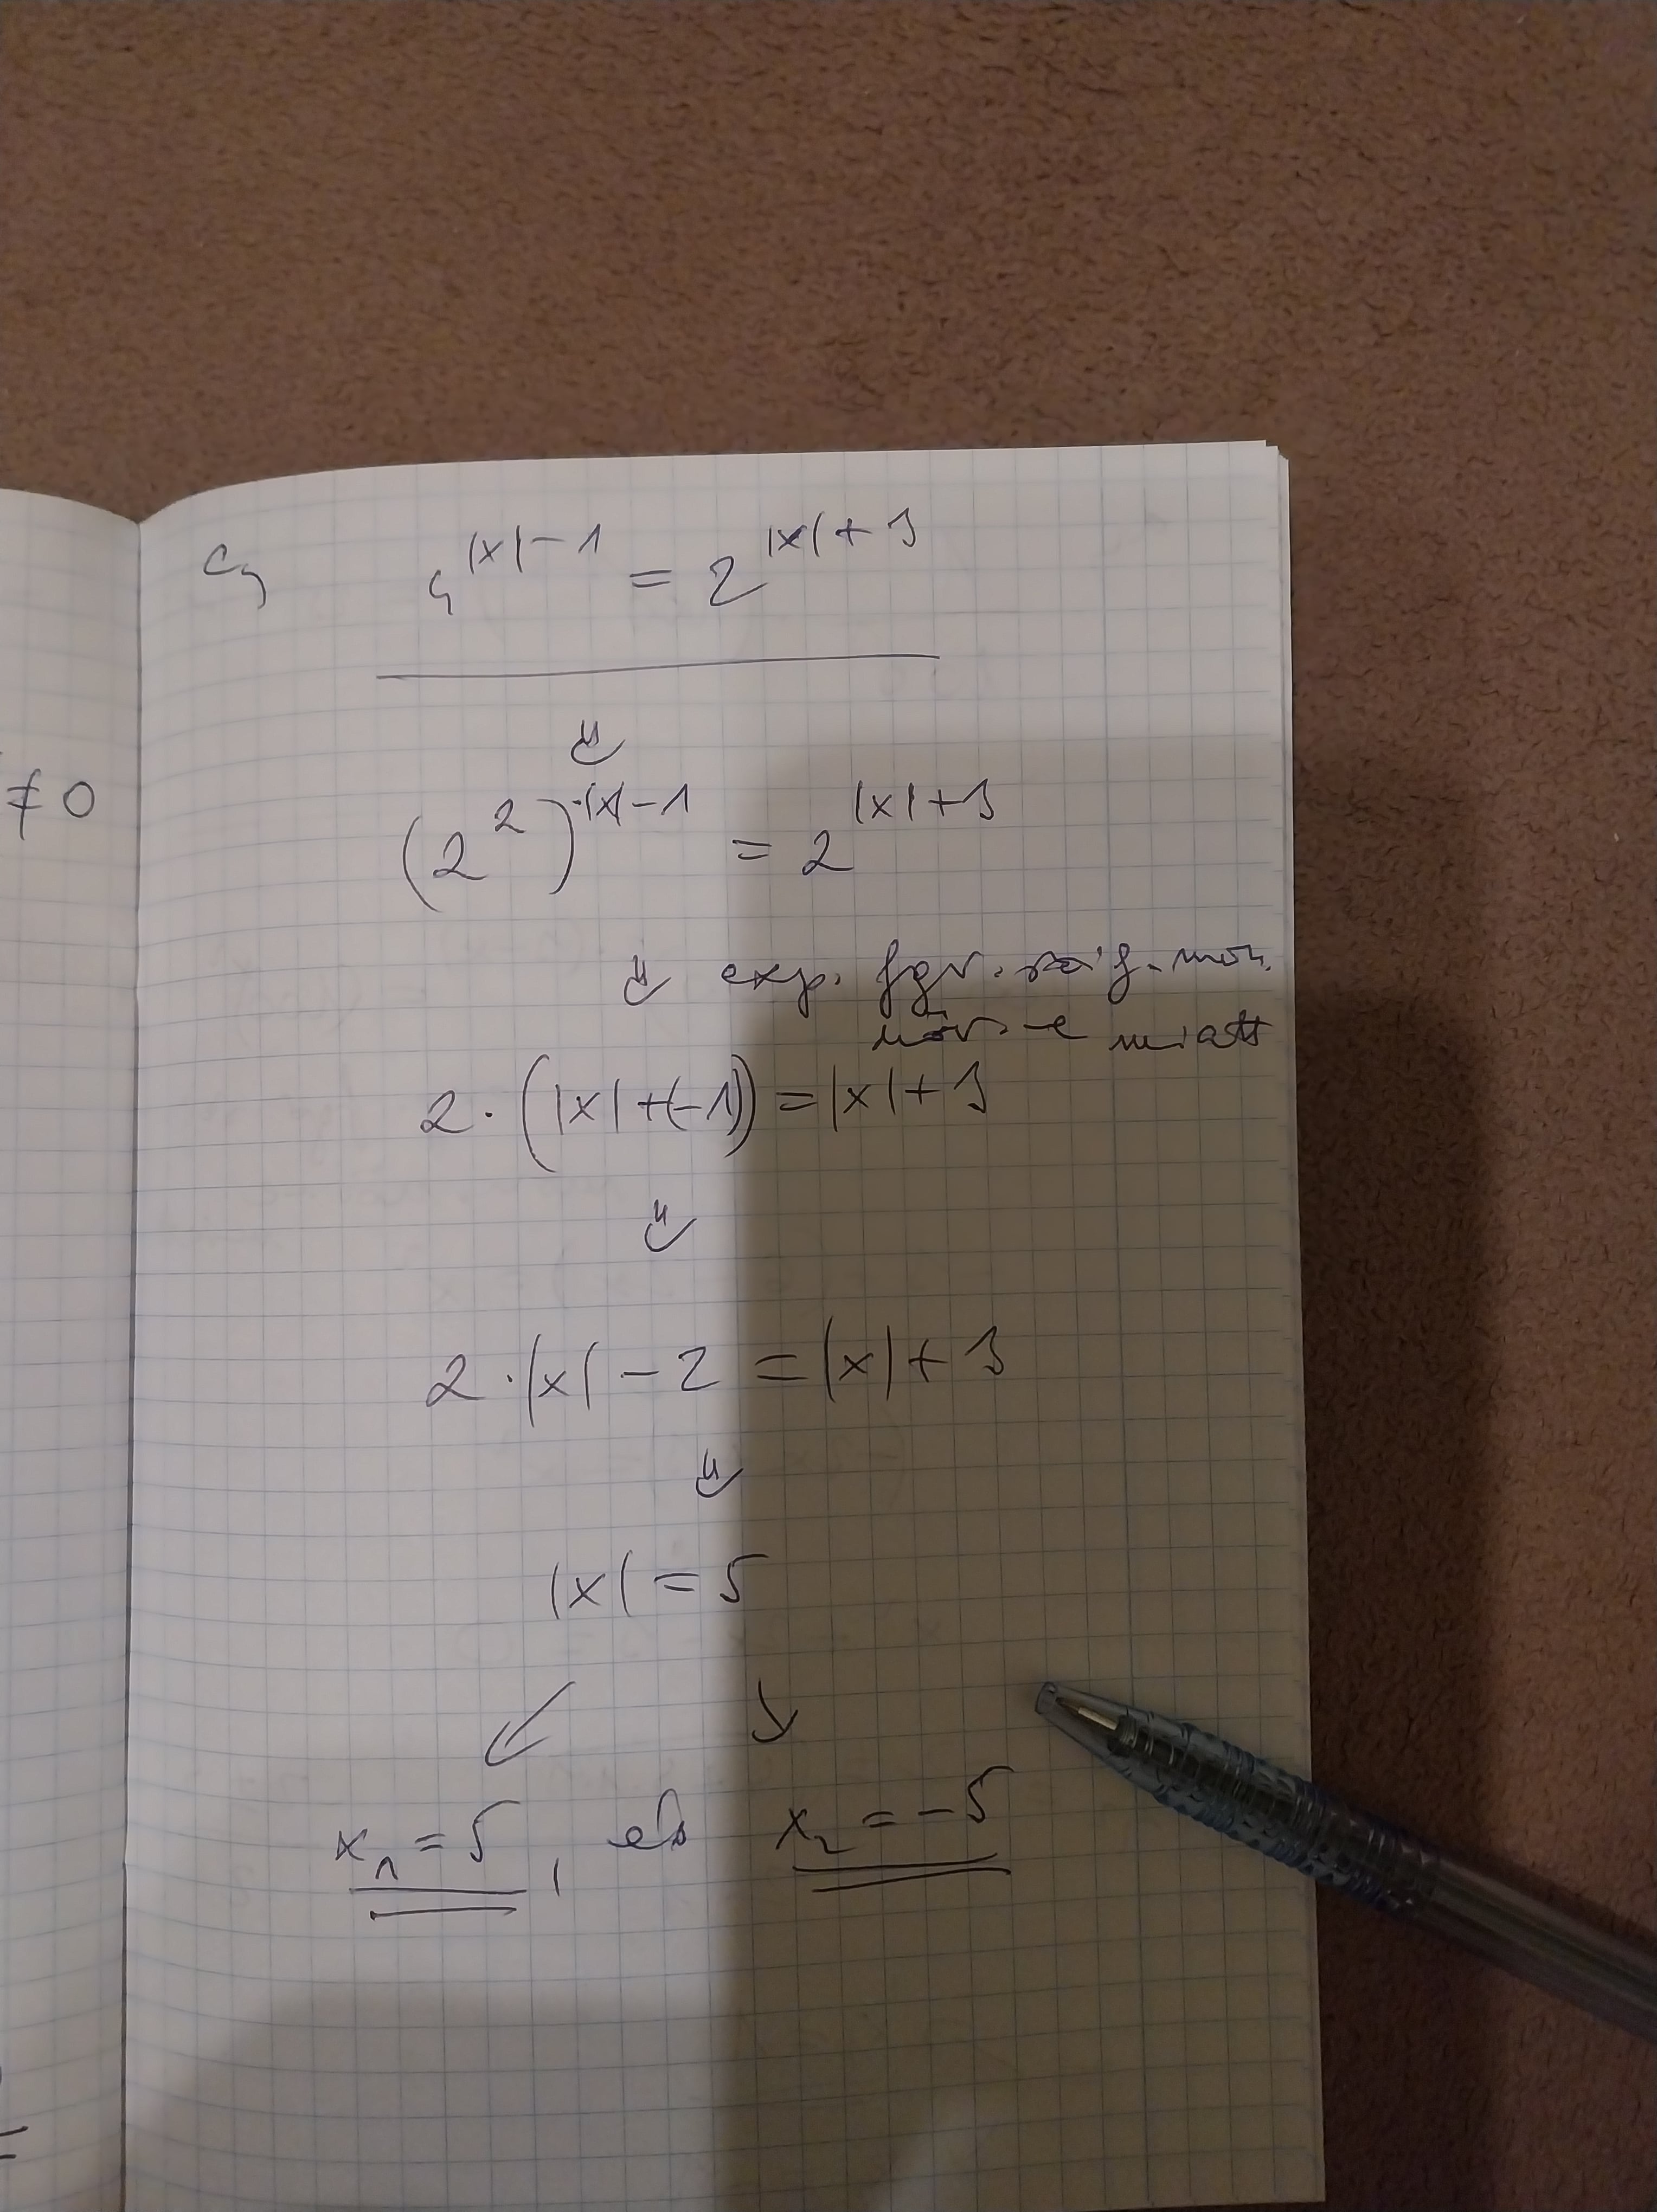 ≠ 0
c,
4^{|x|-1} = 2^{|x|+3}
⇓
(2^2)^{|x|-1} = 2^{|x|+3}
⇓ exp. fgv. szig. mon.
növ.-e miatt
2·(|x|+(-1)) = |x|+3
⇓
2·|x| - 2 = |x|+3
⇓
|x| = 5
↙ ↘
x_1 = 5, és x_2 = -5
=